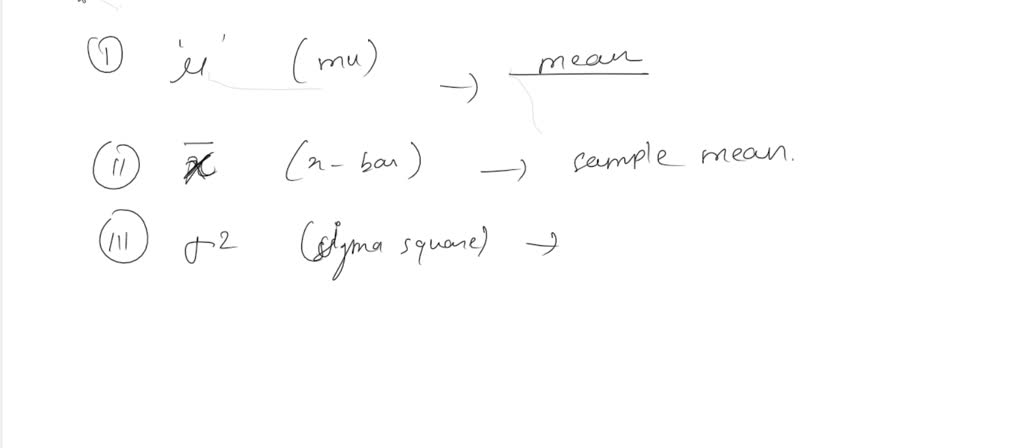 (I) 'μ' (mu) → mean
(II) x̄ (x-bar) → sample mean.
(III) σ2 (sigma square) →